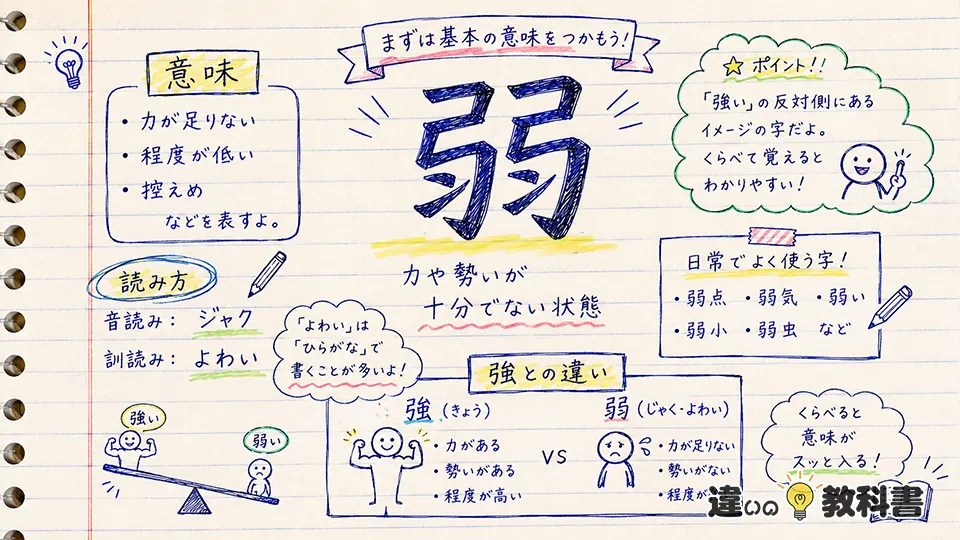 まずは基本の意味をつかもう!
意味
・力が足りない
・程度が低い
・控えめ
などを表すよ。
弱
力や勢いが
十分でない状態
☆ポイント!!
「強い」の反対側にある
イメージの字だよ。
くらべて覚えると
わかりやすい!
読み方
音読み: ジャク
訓読み: よわい
「よわい」は
「ひらがな」で
書くことが多いよ!
日常でよく使う字!
・弱点 ・弱気 ・弱い
・弱小 ・弱虫 など
強い
弱い
強との違い
強(きょう)
・力がある
・勢いがある
・程度が高い
VS
弱(じゃく・よわい)
・力が足りない
・勢いがない
・程度が
くらべると
意味が
スッと入る!
違いの教科書